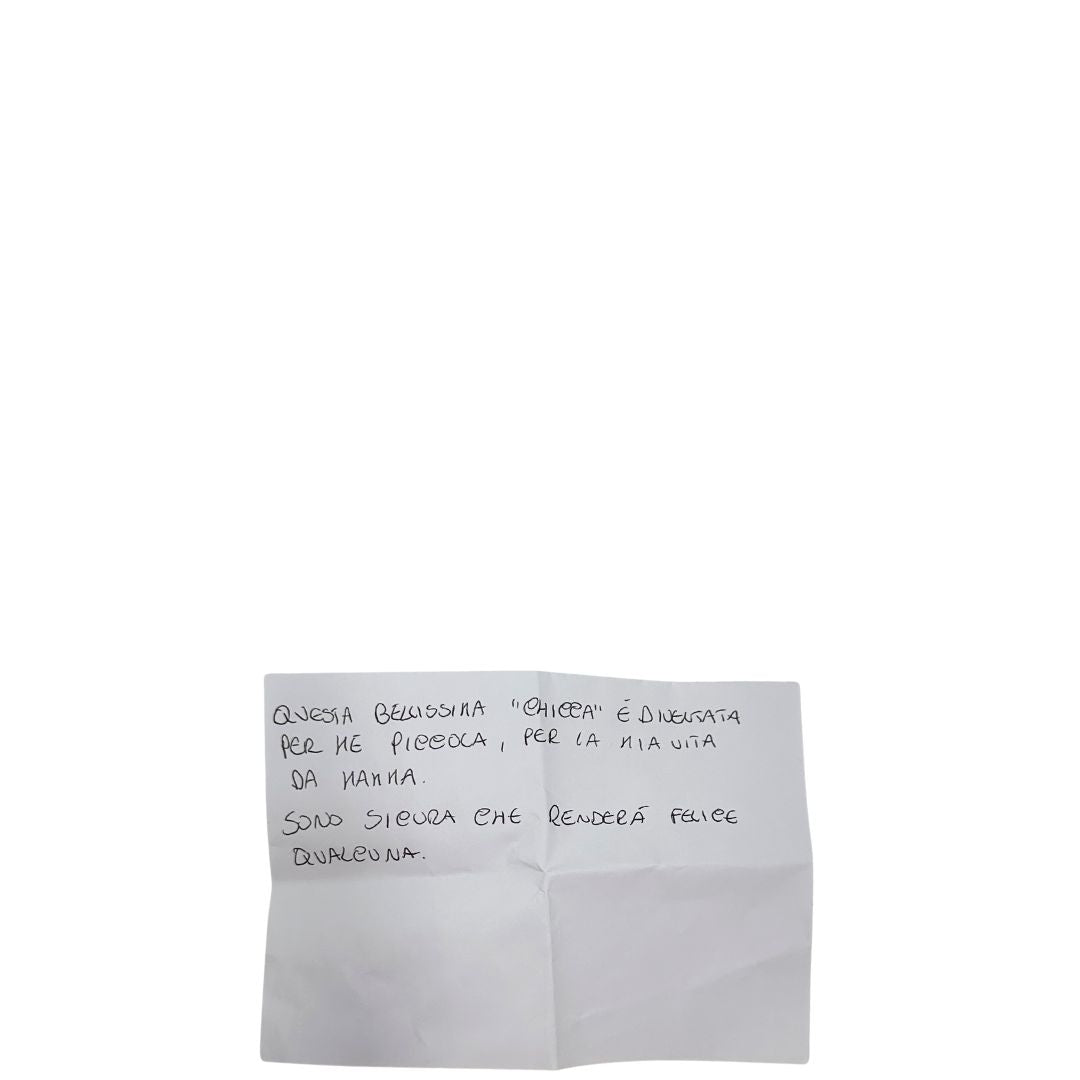 QUESTA BELLISSIMA "CHICCA" É DIVENTATA
PER ME PICCOLA, PER LA MIA VITA
DA MAMMA.
SONO SICURA CHE RENDERÁ FELICE
QUALCUNA.